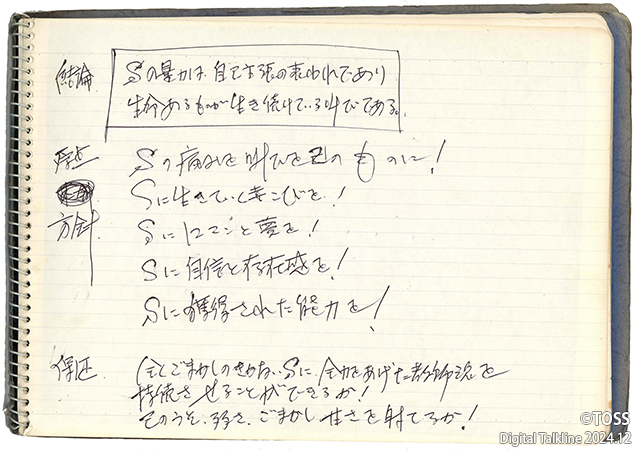 結論
Sの暴力は自己主張の表われであり
生命あるものが生き続けている叫びである。
原点 Sの痛みと叫びを己のものに!
Sに生きていく喜こびを!
方針 Sにロマンと夢を!
Sに自信と存在感を!
Sに獲得された能力を!
保証 全くごまかしのきかないSに 全力をあげた教師の
持続させることができるか!
そのうそ、弱さ、ごまかし 甘さを射てるか!
©TOSS
Digital Talkline 2024.12